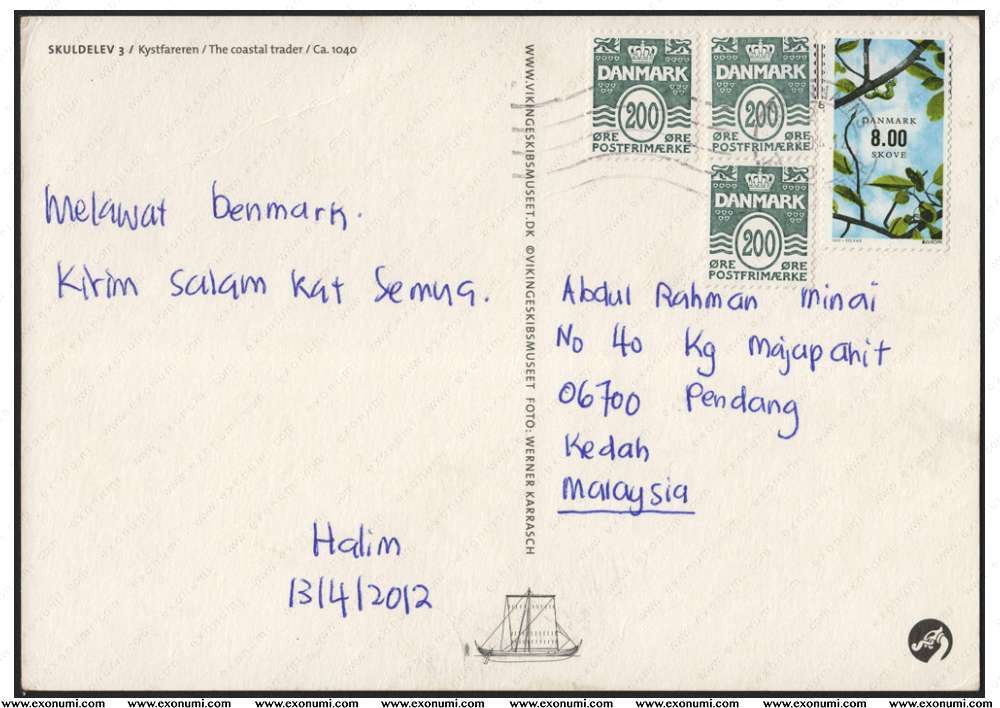 SKULDELEV 3 / Kystfareren / The coastal trader / Ca. 1040
Melawat Denmark.
Kirim salam kat semua.
Halim
13/4/2012
WWW.VIKINGESKIBSMUSEET.DK ©VIKINGESKIBSMUSEET FOTO: WERNER KARRASCH
DANMARK
200
ØRE ØRE
POSTFRIMÆRKE
DANMARK
200
ØRE ØRE
POSTFRIMÆRKE
DANMARK
8.00
SKOVE
DANMARK
200
ØRE ØRE
POSTFRIMÆRKE
Abdul Rahman Minai
No 40 Kg Majapahit
06700 Pendang
Kedah
Malaysia
www.exonumi.com www.exonumi.com www.exonumi.com www.exonumi.com www.exonumi.com www.exonumi.com www.exonumi.com www.exonumi.com